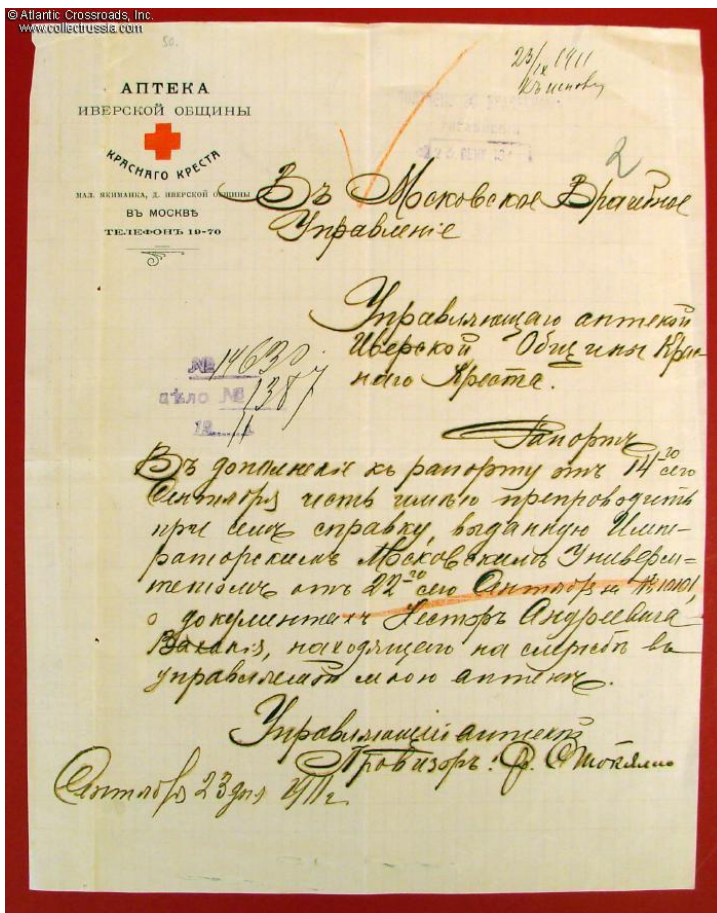 © Atlantic Crossroads, Inc.
www.collectrussia.com
50.
23/IX 1911
АПТЕКА
ИВЕРСКОЙ ОБЩИНЫ
КРАСНАГО КРЕСТА
МАЛ. ЯКИМАНКА, Д. ИВЕРСКОЙ ОБЩИНЫ
ВЪ МОСКВѢ
ТЕЛЕФОНЪ 19-70
2
Въ Московское Врачебное
Управленіе
Управляющаго аптекой
Иверской Общины Крас-
наго Креста.
№ 14630
дѣло № 1387
Рапортъ
Въ дополненіе къ рапорту отъ 14го сего
Сентября честь имѣю препроводить
при семъ справку, выданную Импе-
раторскимъ Московскимъ Универси-
тетомъ отъ 22го сего Сентября за №
о документахъ Нестора Андреевича
находящаго на службѣ въ
управляемой мною аптекѣ.
Управляющій аптекой
Провизоръ: Ф.
Сентября 23 дня 1911 г.